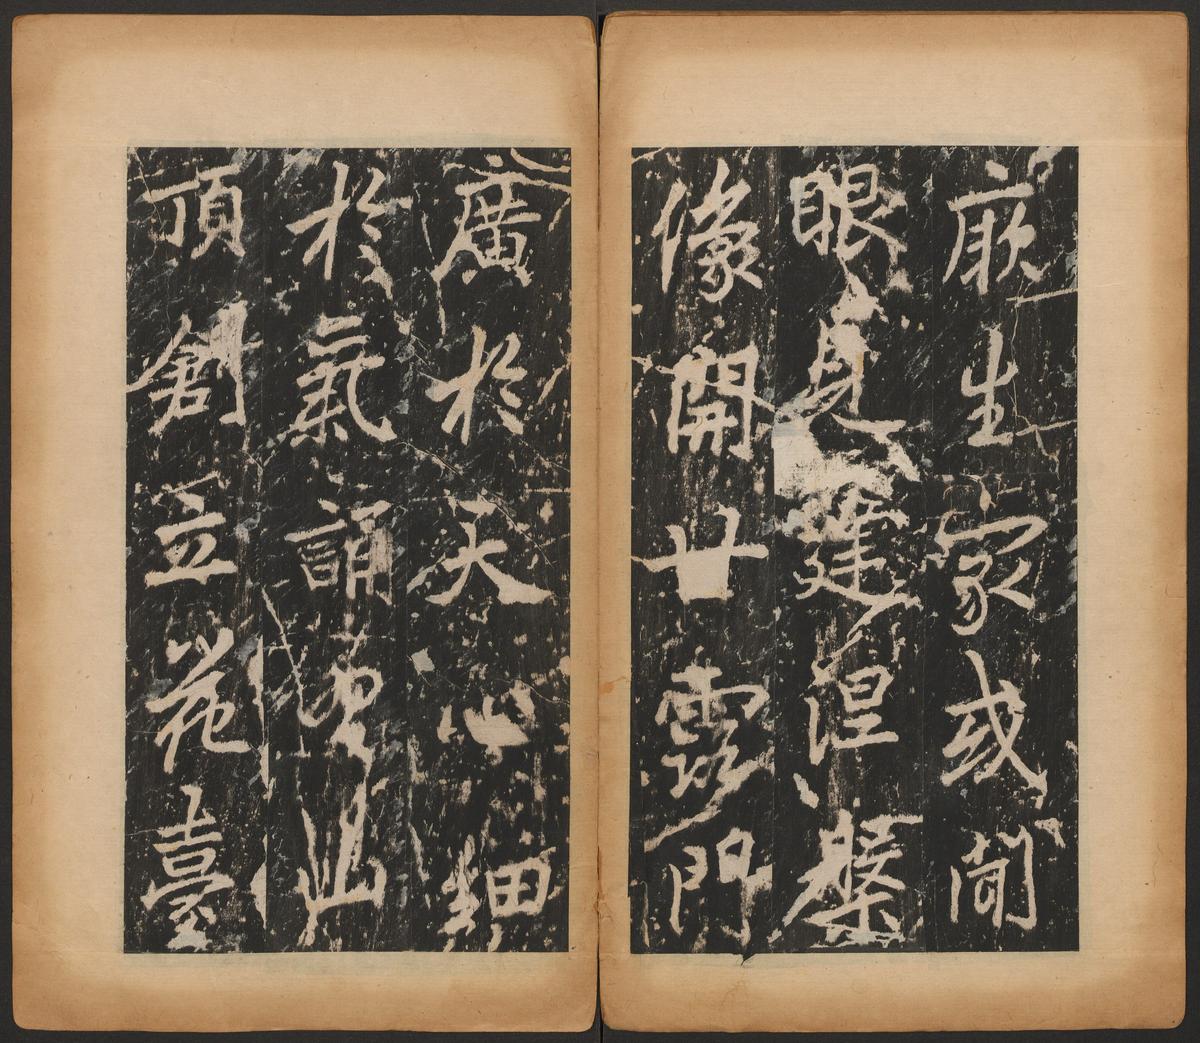 厥生家或
眼見建涅槃
像開甘露門
廣於天心細
於氣誦山
頂創立花臺